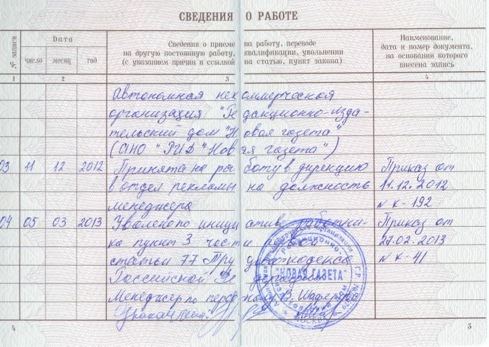 СВЕДЕНИЯ О РАБОТЕ
№ записи
Дата
число
месяц
год
Сведения о приеме на работу, переводе
на другую постоянную работу, квалификации, увольнении
(с указанием причин и ссылкой на статью, пункт закона)
Наименование,
дата и номер документа,
на основании которого
внесена запись
1
2
3
4
Автономная некоммерческая
организация "Редакционно-изда-
тельский дом "Новая газета"
(АНО "РИД "Новая газета")
03 11 12 2012 Принята на работу в дирекцию
в отдел рекламы на должность
менеджера
Приказ от
11.12.2012
№ К-192
04 05 03 2013 Уволена по инициативе работни-
ка пункт 3 части первой
статьи 77 Трудового кодекса
Российской Федерации
Менеджер по персоналу
Приказ от
27.02.2013
№ К-41
"НОВАЯ ГАЗЕТА"
МОСКВА
4
5